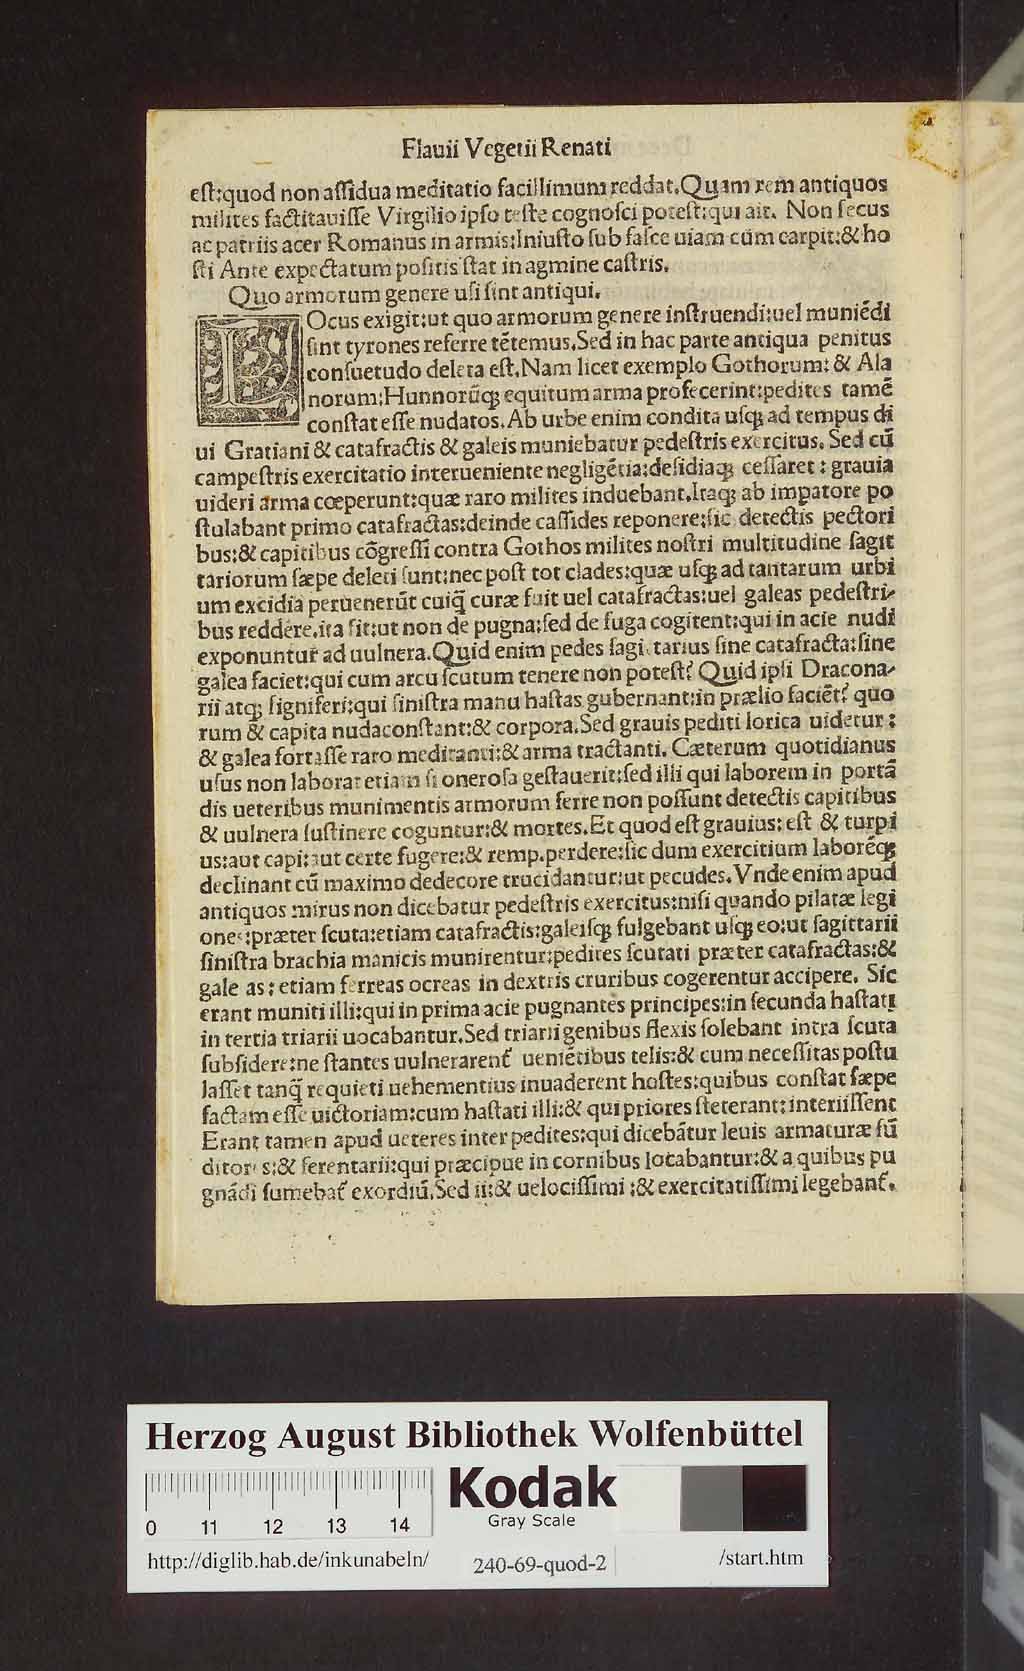 Flauii Vegetii Renati
eſt:quod non aſſidua meditatio facillimum reddat.Quam rem antiquos
milites factitauiſſe Virgilio ipſo teſte cognoſci poteſt:qui ait. Non ſecus
ac patriis acer Romanus in armis:Iniuſto ſub faſce uiam cum carpit:& ho
ſti Ante expectatum poſitis ſtat in agmine caſtris.
Quo armorum genere uſi ſint antiqui.
LOcus exigit:ut quo armorum genere inſtruendi:uel muniẽdi
ſint tyrones referre tẽtemus.Sed in hac parte antiqua penitus
conſuetudo deleta eſt.Nam licet exemplo Gothorum: & Ala
norum:Hunnorũq; equitum arma profecerint:pedites tamẽ
conſtat eſſe nudatos.Ab urbe enim condita uſq; ad tempus di
ui Gratiani & catafractis & galeis muniebatur pedeſtris exercitus. Sed cũ
campeſtris exercitatio interueniente negligẽtia:deſidiaq; ceſſaret : grauia
uideri arma cœperunt:quæ raro milites induebant.Itaq; ab impatore po
ſtulabant primo catafractas:deinde caſſides reponere:ſic detectis pectori
bus:& capitibus cõgreſſi contra Gothos milites noſtri multitudine ſagit
tariorum ſæpe deleti ſunt:nec poſt tot clades:quæ uſq; ad tantarum urbi
um excidia peruenerũt cuiq̃ curæ fuit uel catafractas:uel galeas pedeſtri-
bus reddere.ita fit:ut non de pugna:ſed de fuga cogitent:qui in acie nudi
exponuntur ad uulnera.Quid enim pedes ſagittarius ſine catafracta:ſine
galea faciet:qui cum arcu ſcutum tenere non poteſt? Quid ipſi Dracona-
rii atq; ſigniferi:qui ſiniſtra manu haſtas gubernant:in prælio faciẽt? quo
rum & capita nudaconſtant:& corpora.Sed grauis pediti lorica uidetur :
& galea fortaſſe raro meditanti:& arma tractanti. Cæterum quotidianus
uſus non laborat etiam ſi oneroſa geſtauerit:ſed illi qui laborem in portã
dis ueteribus munimentis armorum ferre non poſſunt detectis capitibus
& uulnera ſuſtinere coguntur:& mortes.Et quod eſt grauius: eſt & turpi
us:aut capi:aut certe fugere:& remp.perdere:ſic dum exercitium laborẽq;
declinant cũ maximo dedecore trucidantur:ut pecudes.Vnde enim apud
antiquos mirus non dicebatur pedeſtris exercitus:niſi quando pilatæ legi
ones:præter ſcuta:etiam catafractis:galeiſq; fulgebant uſq; eo:ut ſagittarii
ſiniſtra brachia manicis munirentur:pedites ſcutati præter catafractas:&
gale as: etiam ferreas ocreas in dextris cruribus cogerentur accipere. Sic
erant muniti illi:qui in prima acie pugnantes principes:in ſecunda haſtati
in tertia triarii uocabantur.Sed triarii genibus flexis ſolebant intra ſcuta
ſubſidere:ne ſtantes uulnerarent᷑ ueniẽtibus telis:& cum neceſſitas poſtu
laſſet tanq̃ requieti uehementius inuaderent hoſtes:quibus conſtat ſæpe
factam eſſe uictoriam:cum haſtati illi:& qui priores ſteterant: interiiſſent
Erant tamen apud ueteres inter pedites:qui dicebãtur leuis armaturæ fũ
ditores:& ferentarii:qui præcipue in cornibus locabantur:& a quibus pu
gnãdi ſumebat᷑ exordiũ.Sed ii:& uelociſſimi :& exercitatiſſimi legebant᷑.
Herzog August Bibliothek Wolfenbüttel
0 11 12 13 14
Kodak
Gray Scale
http://diglib.hab.de/inkunabeln/ 240-69-quod-2 /start.htm